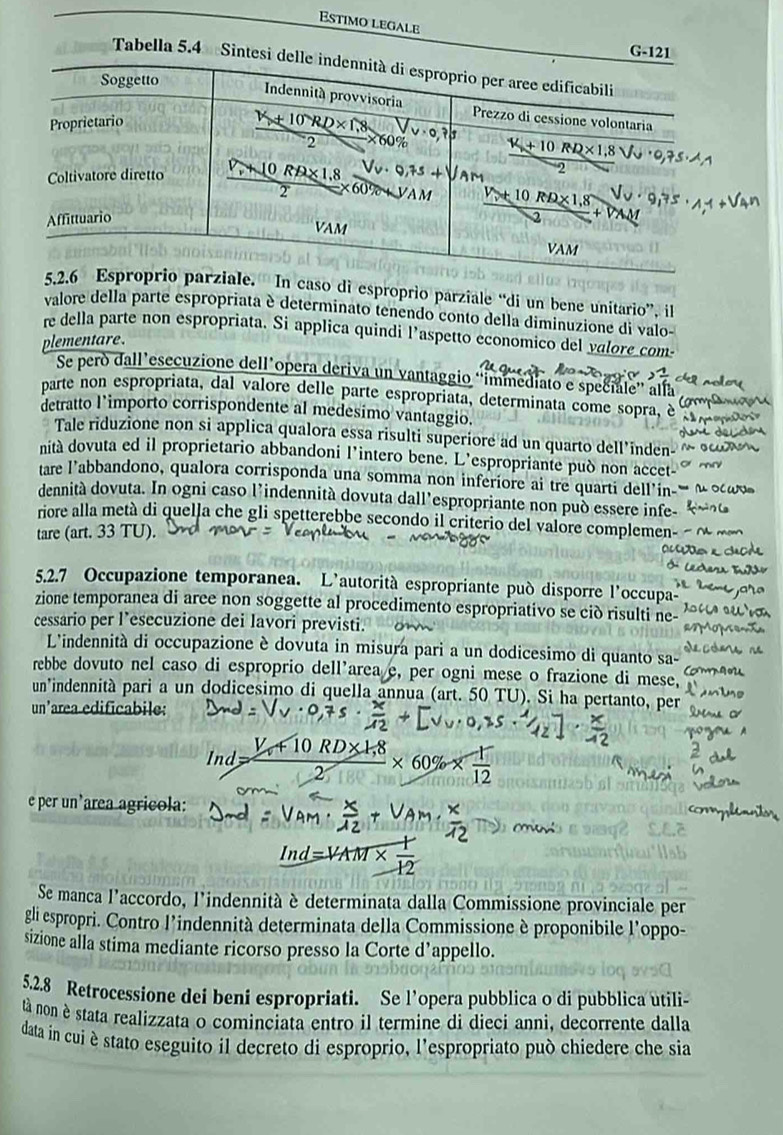 ESTIMO LEGALE
G-121
Tabella 5.4 Sintesi delle indennità di esproprio per aree edificabili
Soggetto Indennità provvisoria Prezzo di cessione volontaria
Proprietario (Vv + 10 RD × 1,8)/2 × 60% Vv · 0,75 (Vv + 10 RD × 1,8)/2 Vv · 0,75 · 1,1
Coltivatore diretto (Vv + 10 RD × 1,8)/2 × 60% + VAM Vv · 0,75 + VAM (Vv + 10 RD × 1,8)/2 + VAM Vv · 0,75 · 1,1 + VAM
Affittuario VAM VAM
5.2.6 Esproprio parziale. In caso di esproprio parziale “di un bene unitario”, il
valore della parte espropriata è determinato tenendo conto della diminuzione di valo-
re della parte non espropriata. Si applica quindi l’aspetto economico del valore com-
plementare.
Se però dall’esecuzione dell’opera deriva un vantaggio “immediato e speciale” alla
parte non espropriata, dal valore delle parte espropriata, determinata come sopra, è
detratto l’importo corrispondente al medesimo vantaggio.
Tale riduzione non si applica qualora essa risulti superiore ad un quarto dell’inden-
nità dovuta ed il proprietario abbandoni l’intero bene. L’espropriante può non accet-
tare l’abbandono, qualora corrisponda una somma non inferiore ai tre quarti dell’in-
dennità dovuta. In ogni caso l’indennità dovuta dall’espropriante non può essere infe-
riore alla metà di quella che gli spetterebbe secondo il criterio del valore complemen-
tare (art. 33 TU).
5.2.7 Occupazione temporanea. L’autorità espropriante può disporre l’occupa-
zione temporanea di aree non soggette al procedimento espropriativo se ciò risulti ne-
cessario per l’esecuzione dei lavori previsti.
L’indennità di occupazione è dovuta in misura pari a un dodicesimo di quanto sa-
rebbe dovuto nel caso di esproprio dell’area e, per ogni mese o frazione di mese,
un’indennità pari a un dodicesimo di quella annua (art. 50 TU). Si ha pertanto, per
un’area edificabile: Ind = Vv · 0,75 · x/12 + [Vv · 0,75 · 1/12] · x/12
Ind = (Vv + 10 RD × 1,8)/2 × 60% × 1/12
mesi
anni
e per un’area agricola: Ind = VAM · x/12 + VAM · x/12 → mesi
Ind = VAM × 1/12
Se manca l’accordo, l’indennità è determinata dalla Commissione provinciale per
gli espropri. Contro l’indennità determinata della Commissione è proponibile l’oppo-
sizione alla stima mediante ricorso presso la Corte d’appello.
5.2.8 Retrocessione dei beni espropriati. Se l’opera pubblica o di pubblica utili-
tà non è stata realizzata o cominciata entro il termine di dieci anni, decorrente dalla
data in cui è stato eseguito il decreto di esproprio, l’espropriato può chiedere che sia